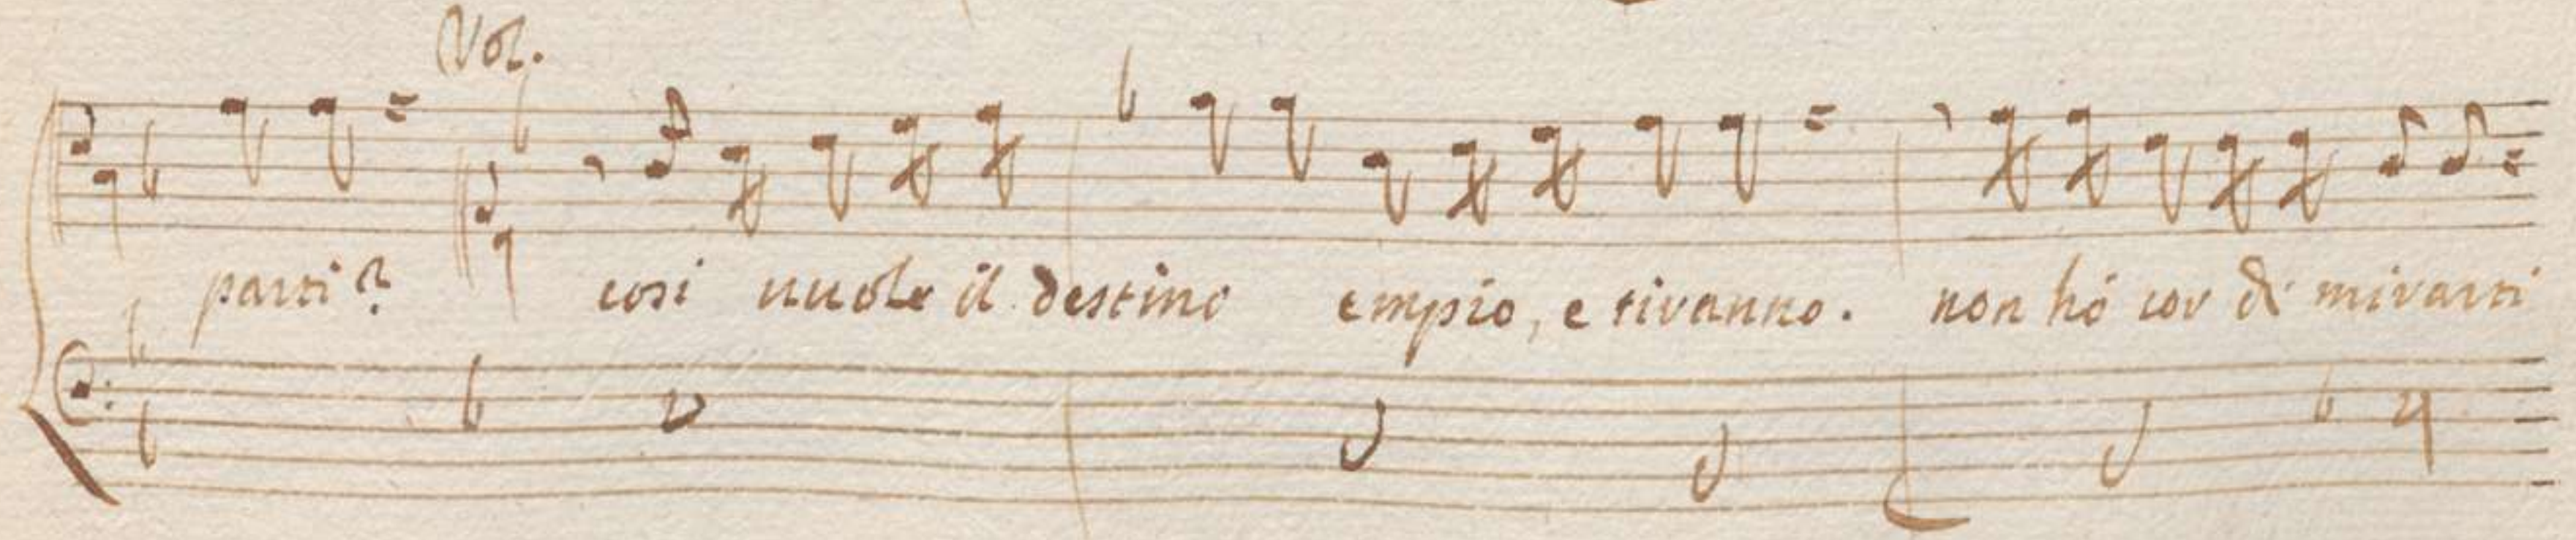 Vol.
parti? cosi vuole il destino empio, e tiranno. non hò cor di mirarti